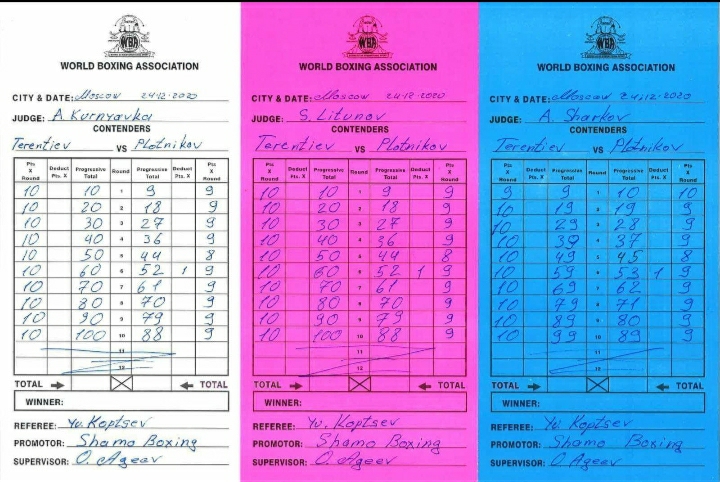 WBA
WORLD BOXING ASSOCIATION
CITY & DATE: Moscow 24-12-2020
JUDGE: A. Kurnyavka
CONTENDERS
Terentiev VS Plotnikov
Pts X Round Deduct Pts. X Progressive Total Round Progressive Total Deduct Pts. X Pts X Round
10 10 1 9 9
10 20 2 18 9
10 30 3 27 9
10 40 4 36 9
10 50 5 44 8
10 60 6 52 1 9
10 70 7 61 9
10 80 8 70 9
10 90 9 79 9
10 100 10 88 9
11
12
TOTAL TOTAL
WINNER:
REFEREE: Yu. Koptsev
PROMOTOR: Shamo Boxing
SUPERVISOR: O. Ageev
WBA
WORLD BOXING ASSOCIATION
CITY & DATE: Moscow 24-12-2020
JUDGE: S. Litunov
CONTENDERS
Terentiev VS Plotnikov
Pts X Round Deduct Pts. X Progressive Total Round Progressive Total Deduct Pts. X Pts X Round
10 10 1 9 9
10 20 2 18 9
10 30 3 27 9
10 40 4 36 9
10 50 5 44 8
10 60 6 52 1 9
10 70 7 61 9
10 80 8 70 9
10 90 9 79 9
10 100 10 88 9
11
12
TOTAL TOTAL
WINNER:
REFEREE: Yu. Koptsev
PROMOTOR: Shamo Boxing
SUPERVISOR: O. Ageev
WBA
WORLD BOXING ASSOCIATION
CITY & DATE: Moscow 24.12.2020
JUDGE: A. Sharkov
CONTENDERS
Terentiev VS Plotnikov
Pts X Round Deduct Pts. X Progressive Total Round Progressive Total Deduct Pts. X Pts X Round
9 9 1 10 10
10 19 2 19 9
10 29 3 28 9
10 39 4 37 9
10 49 5 45 8
10 59 6 53 1 9
10 69 7 62 9
10 79 8 71 9
10 89 9 80 9
10 99 10 89 9
11
12
TOTAL TOTAL
WINNER:
REFEREE: Yu. Koptsev
PROMOTOR: Shamo Boxing
SUPERVISOR: O. Ageev